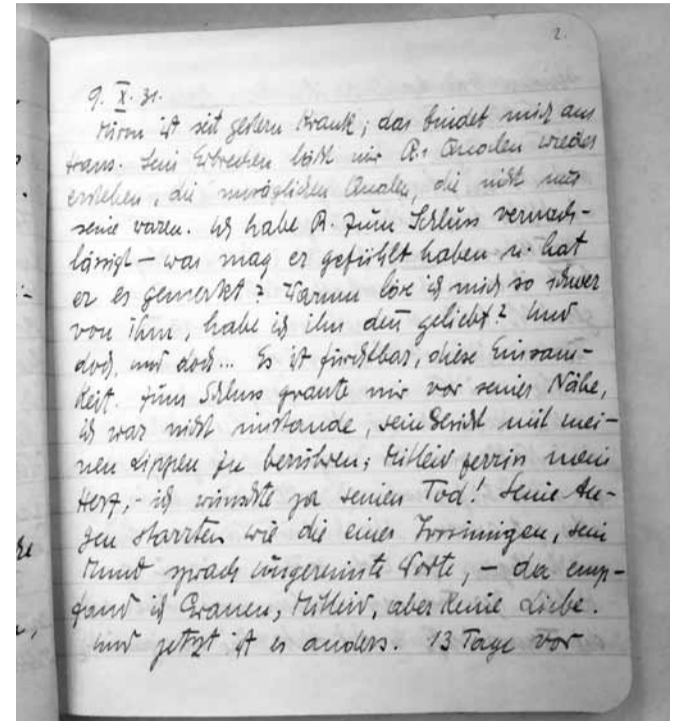 2.
9. X. 31.
ist seit gestern krank; das bindet mich ans
Haus. Sein Erbrechen lässt mir R.s Qualen wieder
erstehen, die unsäglichen Qualen, die nicht nur
seine waren. Ich habe R. zum Schluss vernach-
lässigt – was mag er gefühlt haben u. hat
er es gemerkt? Warum löse ich mich so schwer
von ihm, habe ich ihn den geliebt? Und
doch, und doch... Es ist furchtbar, diese Einsam-
keit. Zum Schluss graute mir vor seiner Nähe,
ich war nicht imstande, sein Gesicht mit mei-
nen Lippen zu berühren; Mitleid zerriss mein
Herz, – ich wünschte ja seinen Tod! Seine Au-
gen starrten wie die eines Irrsinnigen, sein
Mund sprach ungereimte Worte, – da emp-
fand ich Grauen, Mitleid, aber keine Liebe.
Und jetzt ist es anders. 13 Tage vor